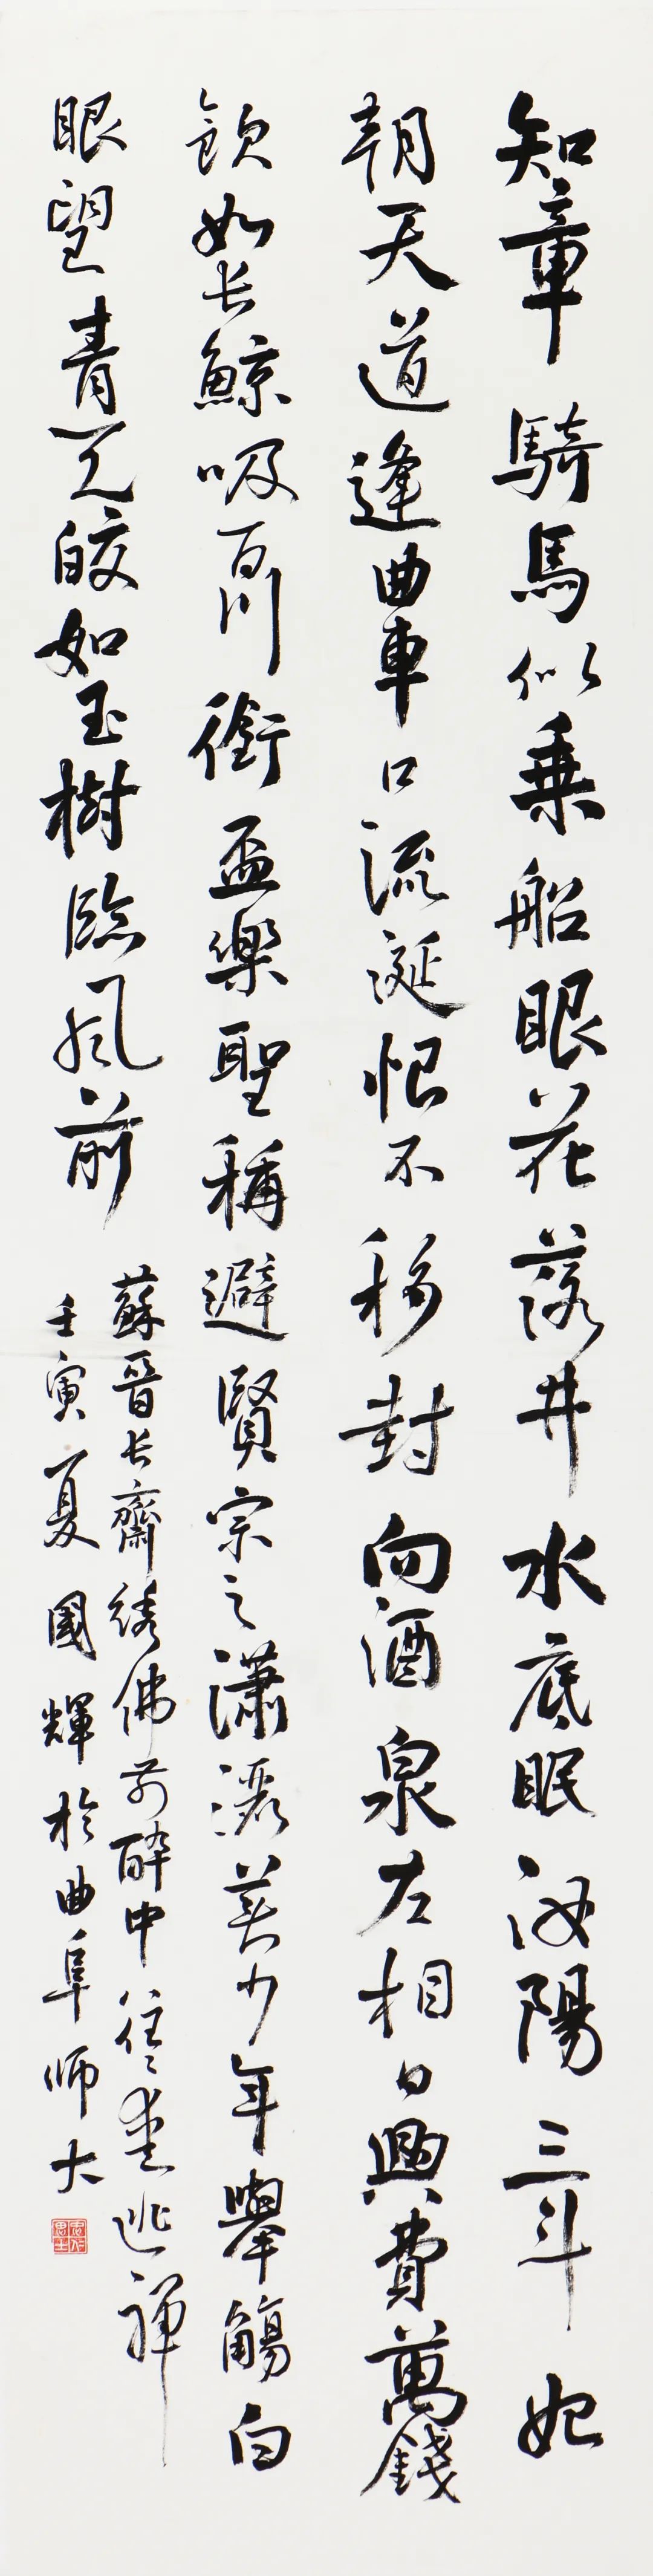 知章騎馬似乗船眼花落井水底眠汝陽三斗始
朝天道逢曲車口流涎恨不移封向酒泉左相日興費萬錢
飲如长鯨吸百川銜盃樂聖稱避賢宗之瀟洒美少年舉觴白
眼望青天皎如玉樹臨風前
蘇晉长齋綉佛前醉中往々愛逃禅
壬寅夏國輝於曲阜师大